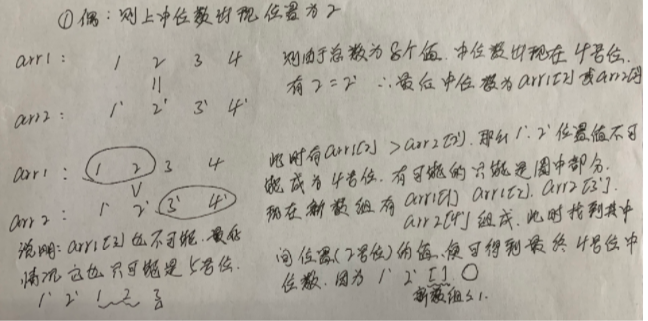 ①偶：则上中位数出现位置为2
arr1： 1 2 3 4
||
arr2： 1' 2' 3' 4'
则由于总数为8个值，中位数出现在4号位.
有2=2' ∴最后中位数为arr1[2]或arr2[2']
arr1： 1 2 3 4
∨
arr2： 1' 2' 3' 4'
说明：arr1[3]也不可能，最好
情况它也只可能是5号位.
1' 2' 1 2 3
此时有arr1[2] > arr2[2']. 那么1'. 2'位置值不可
能成为4号位. 有可能的只能是圈中部分.
现在新数组有arr1[1] arr1[2]. arr2[3'].
arr2[4']组成. 此时找到其中
间位置(2号位)的值，便可得到最终4号位中
位数. 因为 1' 2' [ ] ○
新数组